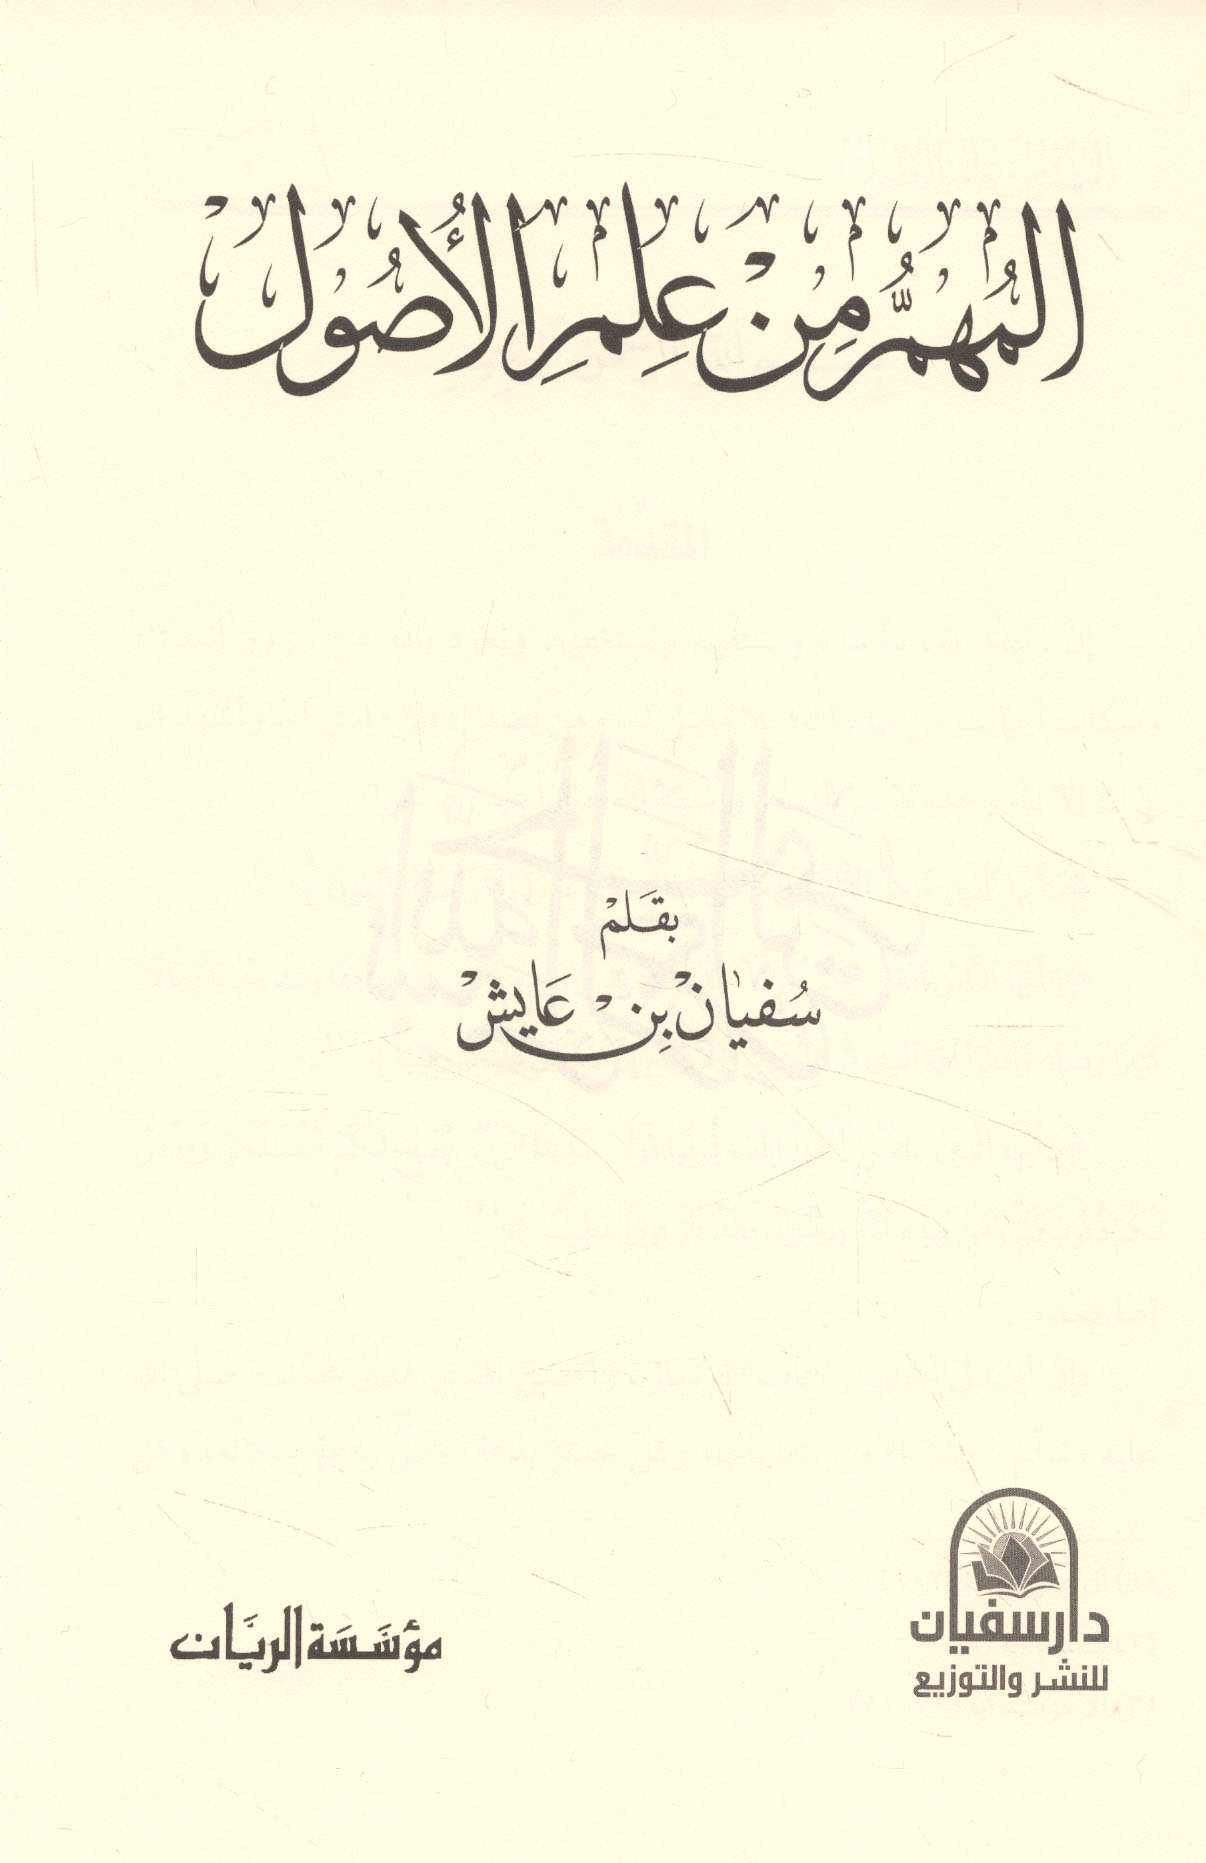 المُهِمُّ مِنْ عِلْمِ الأُصُولِ
بقَلَم
سُفيَان بْن عَايِش
دار سفيان
للنشر والتوزيع
مؤسَّسَة الريَّان